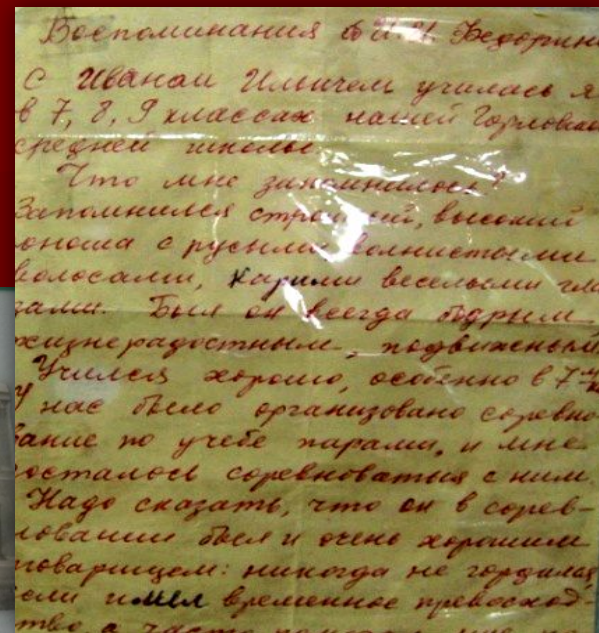 Воспоминания о И.И. Федорин
С Иваном Ильичем училась я
в 7, 8, 9 классах нашей Горловско
средней школы.
Что мне запомнилось?
Запомнился стройный, высокий
юноша с русыми волнистыми
волосами, карими веселыми гла
зами. Был он всегда бодрым,
жизнерадостным, подвижным
Учился хорошо, особенно в 7
У нас было организовано соревно
вание по учебе парами, и мне
досталось соревноваться с ним.
Надо сказать, что он в сорев-
новании был и очень хорошим
товарищем: никогда не гордился
если имел временное превосход-
ство, а часто